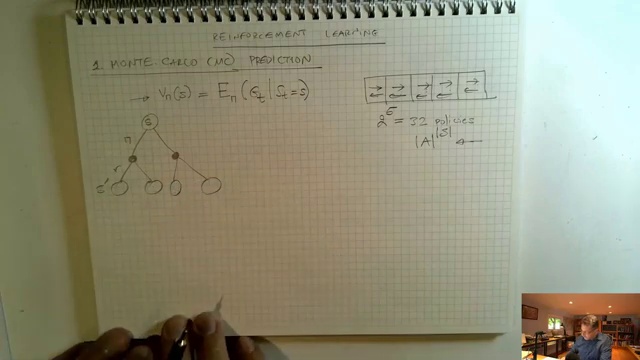 REINFORCEMENT LEARNING
1. MONTE-CARLO (MC) PREDICTION
→ Vπ(s) = Eπ(Gt | St = s)
2^5 = 32 policies
|A|^|S| ←
S
π
r
s'